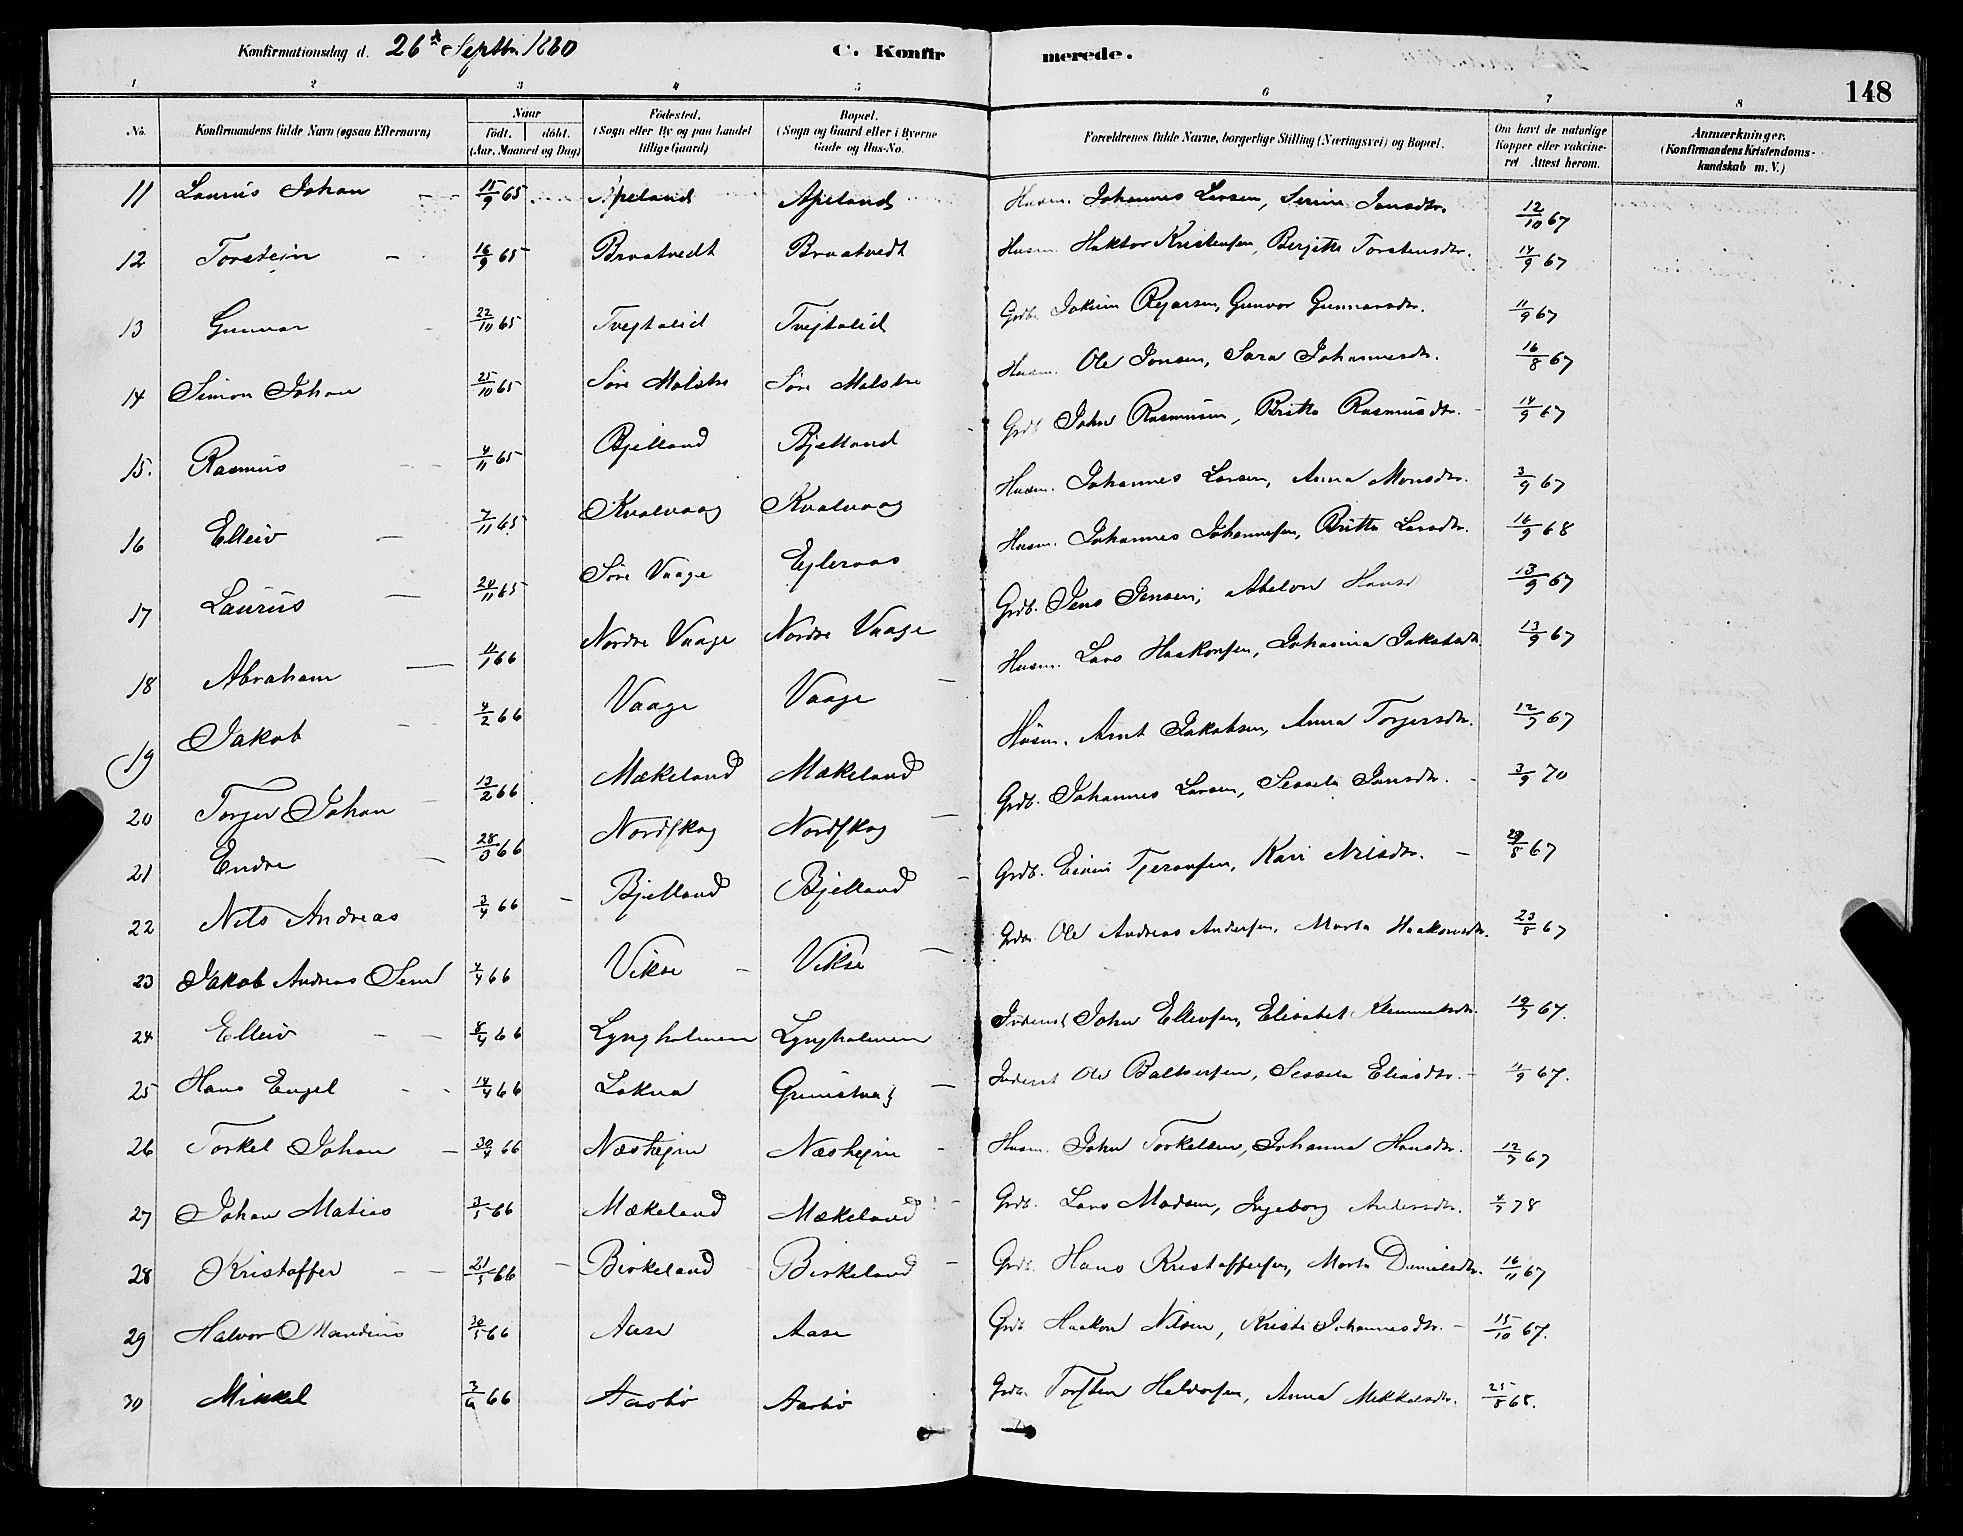 Konfirmationsdag d. 26de Septbr. 1880 C. Konfirmerede.
148
1 2 3 4 5 6 7 8
No. Konfirmandens fulde Navn (ogsaa Efternavn) Naar født. døbt. (Aar, Maaned og Dag) Fødested. (Sogn eller By og paa Landet tillige Gaard) Bopæl. (Sogn og Gaard eller i Byerne Gade og Hus-No. Forældrenes fulde Navne, borgerlige Stilling (Næringsvei) og Bopæl. Om havt de naturlige Kopper eller vakcineret. Attest herom. Anmærkninger. (Konfirmandens Kristendomskundskab m. V.)
11 Laurits Johan 15/9 65 Apeland Apeland Husm. Johannes Larsen, Serine Jonsdtr. 12/10 67
12 Torstein 16/9 65 Braatvedt Braatvedt Husm. Haktor Kristensen, Berjitte Torstensdtr. 14/9 67
13 Gunnar 22/10 65 Tvejtalid Tvejtalid Grdb. Jokum Rejarsen, Gunvor Gunnarsdtr. 11/9 67
14 Simon Johan 25/10 65 Søre Molstre Søre Molstre Husm. Ole Jonsen, Sara Johannesdtr. 16/8 67
15. Rasmus 4/11 65 Bjelland Bjelland Grdb. John Rasmussen, Britta Rasmusdtr. 14/9 67
16 Elleiv 7/11 65 Kvalvaag Kvalvaag Husm. Johannes Larsen, Anna Monsdtr. 3/9 67
17 Laurits 24/11 65 Søre Vaage Ejleraas Husm. Johannes Johannessen, Britta Larsdtr. 16/9 68
18 Abraham 11/1 66 Nordre Vaage Nordre Vaage Grdb. Jens Jensen, Abelone Hansd 13/9 67
19 Jakob 4/2 66 Vaage Vaage Husm. Lars Haakonsen, Johanna Jakobsdtr. 13/9 67
20 Torger Johan 13/2 66 Mækeland Mækeland Husm. Arnt Jakobsen, Anna Torgersdtr. 12/9 67
21 Endre 28/ 66 Nordskog Nordskog Grdb. Johannes Larsen, Sessela Jonsdtr. 3/9 70
22 Nils Andreas 3/4 66 Bjelland Bjelland Grdb. Tjeransen, Kari Nilsdtr. 29/8 67
23 Jakob Andreas 4/4 66 Vikse Vikse Grdb. Ole Andreas Andersen, Marta Haakonsdtr. 23/8 67
24 Elleiv 8/4 66 Lyngholmen Lyngholmen Inderst John Ellevsen, Elisabet Klemmetsdtr. 19/9 67.
25 Hans Engel 14/4 66 Lokna Grimsvaag Inderst Ole Baltsersen, Sessela Eliasdtr. 11/9 67.
26 Torkel Johan 30/4 66 Næshejm Næshejm Husm. John Torkelsen, Johanna Hansdtr. 12/9 67
27 Johan Matias 3/5 66 Mækeland Mækeland Grdb. Lars Madsen, Ingeborg Andersdtr. 4/9 78
28 Kristoffer 21/5 66 Birkeland Birkeland Grdb. Hans Kristoffersen, Marta Danielsdtr. 16/11 67
29 Halvor Mandius 30/5 66 Aase Aase Grdb. Haakon Nilsen, Kristi Johannesdtr. 15/10 67.
30 Mikkel 3/6 66 Aasbø Aasbø Grdb. Torsten Halvorsen, Anna Mikkelsdtr. 25/8 68.